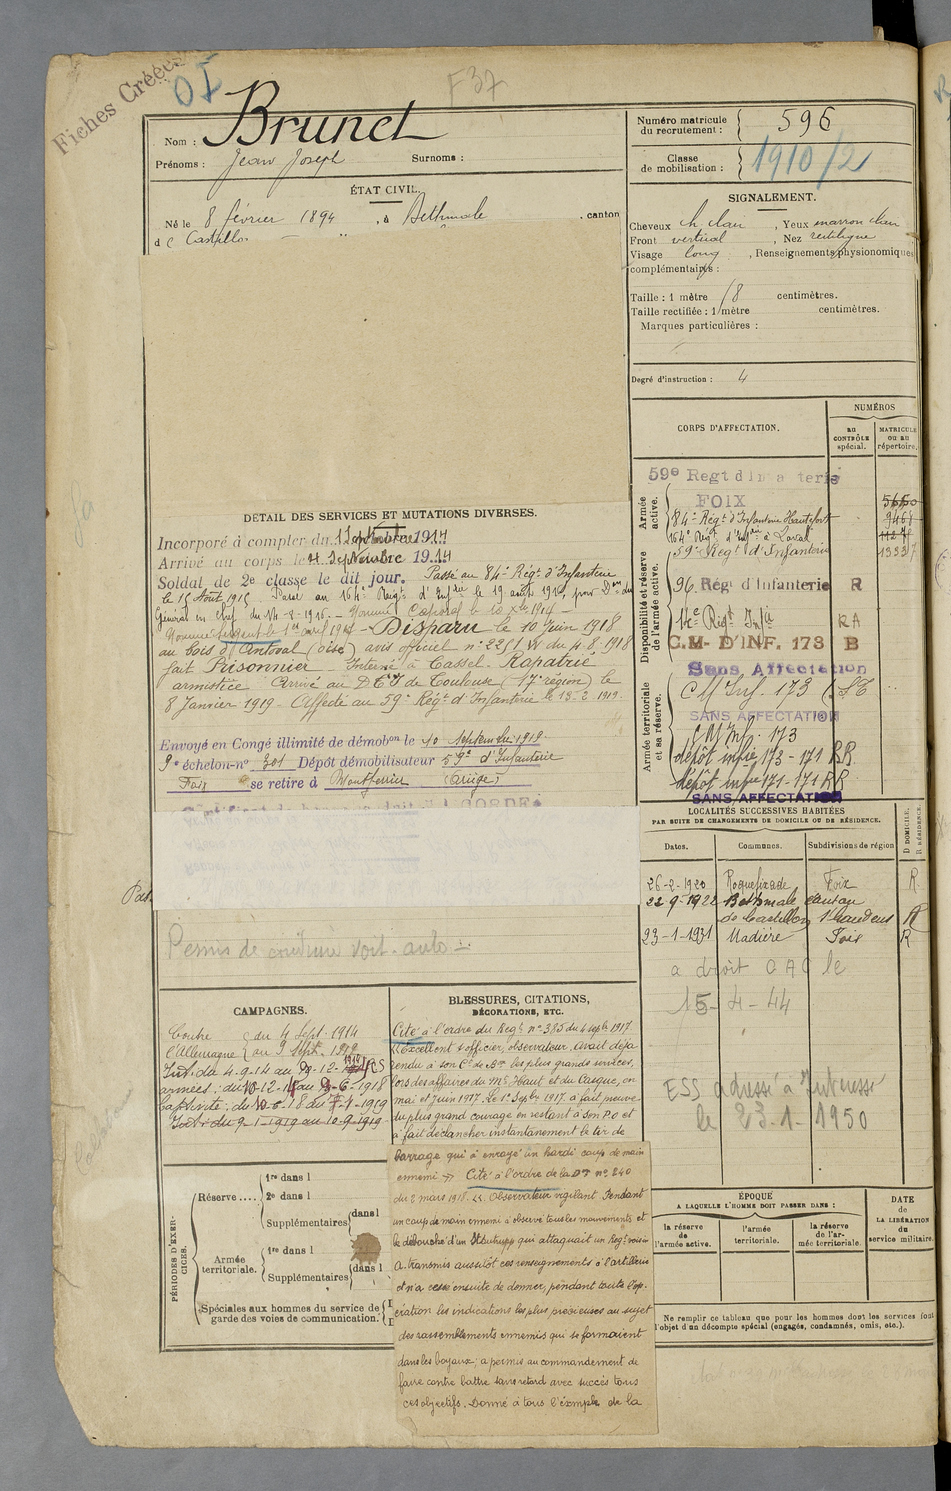 Fiches Créées
01
F 37
Nom : Brunet
Prénoms : Jean Joseph Surnoms :
Numéro matricule du recrutement : 596
Classe de mobilisation : 1910/2
ÉTAT CIVIL.
Né le 8 février 1894, à Bethmale, canton
de Castillon
SIGNALEMENT.
Cheveux ch clair, Yeux marron clair
Front vertical, Nez rectiligne
Visage long, Renseignements physionomiques
complémentaires :
Taille : 1 mètre 78 centimètres.
Taille rectifiée : 1 mètre centimètres.
Marques particulières :
Degré d'instruction : 4
DÉTAIL DES SERVICES ET MUTATIONS DIVERSES.
Incorporé à compter du 1 Septembre 1914
Arrivé au corps le 4 Septembre 1914
Soldat de 2e classe le dit jour. Passé au 84e Régt d'Infanterie
le 15 Août 1915 Passé au 164e Régt d'Infrie le 19 août 1916, pour Don du
Général en Chef du 14-8-1916. Nommé Caporal le 10
Nommé Sergent le 1er avril Disparu le 10 Juin 1918
au bois d'Antoval (Oise) avis officiel n° 2251 W du 4.8.1918
fait Prisonnier Interné à Cassel. Rapatrié
armistice Arrivé au DCI de Toulouse (17e région) le
8 Janvier 1919. Affecté au 59e Régt d'Infanterie le 13-2-1919.
Envoyé en Congé illimité de démobon le 10 Septembre 1919
9e échelon-n° 301 Dépôt démobilisateur 59e d'Infanterie
Foix se retire à Montferrier (Ariège)
Permis de conduire voit. auto
CORPS D'AFFECTATION.
NUMÉROS
AU CONTRÔLE spécial.
MATRICULE OU AU répertoire.
Armée active.
59e Regt d'Infanterie
FOIX
84e Régt d'Infanterie
164e Régt d'Infrie à Laval
59e Régt d'Infanterie
Disponibilité et réserve de l'armée active.
96 Rég d'Infanterie R
14e Régt Infie RA
C.M. D'INF. 173 B
Sans Affectation
Armée territoriale et sa réserve.
C M Inf. 173
SANS AFFECTATION
C M Inf. 173
dépôt infie 173-171 RR
dépôt infie 171-171 RR
SANS AFFECTATION
LOCALITÉS SUCCESSIVES HABITÉES
PAR SUITE DE CHANGEMENTS DE DOMICILE OU DE RÉSIDENCE.
Dates. Communes. Subdivisions de région
D DOMICILE.
R RÉSIDENCE.
26-2-1920 Roquefixade Foix R
22-9-1922 Bethmale canton
de Castillon St Gaudens R
23-1-1931 Madière Foix R
a droit CAC le
15-4-44
ESS adressé à Intéressé
le 23-1-1950
CAMPAGNES.
Contre du 4 Sept. 1914
l'Allemagne au 9 Sept. 1919
Int: du 4-9-14 au 9-12-
armées: du 10-12- au 9-6-1918
captivité: du 10-6-18 au 7-1-1919
Int: du 9-1-1919 au 10-9-1919
BLESSURES, CITATIONS,
DÉCORATIONS, ETC.
Cité à l'ordre du Régt n° 385 du 4 sept 1917.
"Excellent s/officier, observateur. Avait déjà
rendu à son Ct de Bon les plus grands services,
lors des affaires du Mt Haut et du Casque, en
mai et juin 1917. Le 1er Septbre 1917, a fait preuve
du plus grand courage en restant à son PO et
a fait déclancher instantanément le tir de
barrage qui a enrayé un hardi coup de main
ennemi" Cité à l'ordre de la DI n° 240
du 2 mars 1918. "Observateur vigilant. Pendant
un coup de main ennemi a observé tous les mouvements et
le débouché d'un Stosstrupp qui attaquait un Régt voisin
A transmis aussitôt ces renseignements à l'artillerie
et n'a cessé ensuite de donner, pendant toute l'op-
ération les indications les plus précieuses au sujet
des rassemblements ennemis qui se formaient
dans les boyaux; a permis au commandement de
faire contre battre sans retard avec succès tous
ces objectifs. Donné à tous l'exemple de la
PÉRIODES D'EXERCICES.
Réserve....
1re dans l
2e dans l
Supplémentaires dans l
Armée territoriale.
1re dans l
Supplémentaires dans l
Spéciales aux hommes du service de
garde des voies de communication.
ÉPOQUE
A LAQUELLE L'HOMME DOIT PASSER DANS :
la réserve de l'armée active.
l'armée territoriale.
la réserve de l'armée territoriale.
DATE
de
LA LIBÉRATION
du
service militaire.
Ne remplir ce tableau que pour les hommes dont les services font
l'objet d'un décompte spécial (engagés, condamnés, omis, etc.).